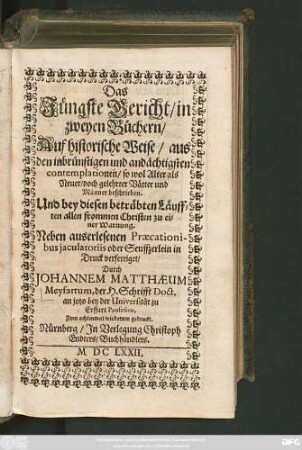 Das
Jüngste Gericht/in
zweyen Büchern/
Auf historische Weise/ aus
den inbrünstigen und andächtigsten
contemplationen/ so wol Alter als
Neuer/doch gelehrter Vätter und
Männer beschrieben.
Und bey diesen betrübten Läuff-
ten allen frommen Christen zu ei-
ner Warnung.
Neben auserlesenen Præcationi-
bus jaculatoriis oder Seuffzerlein in
Druck verfertiget/
Durch
JOHANNEM MATTHÆUM
Meyfartum, der H. Schrifft Doct.
an jetzo bey der Universität zu
Erffurt Professorn.
Zum achtenmal wiederum gedruckt.
Nürnberg/ In Verlegung Christoph
Endters/ Buchhändlers.
M DC LXXII.